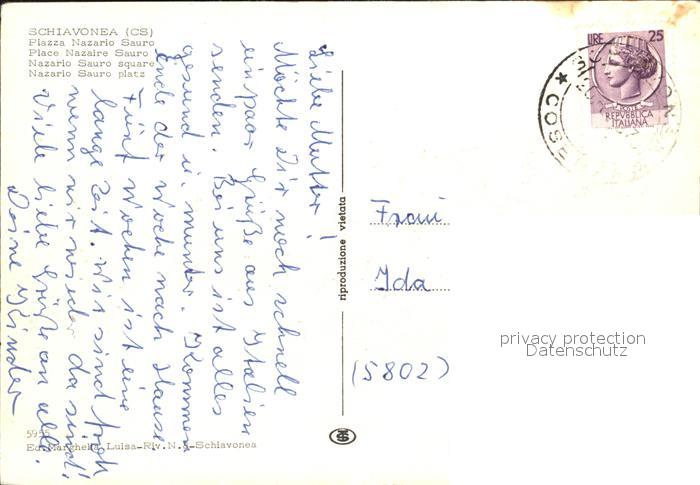 SCHIAVONEA (CS)
Piazza Nazario Sauro
Place Nazaire Sauro
Nazario Sauro square
Nazario Sauro platz
Liebe Mutter!
Möchte Dir noch schnell
ein paar Grüße aus Italien
senden. Bei uns ist alles
gesund u. munter. Kommen
Ende der Woche nach Hause.
Fünf Wochen ist eine
lange Zeit. Wir sind froh
wenn wir wieder da sind!
Viele liebe Grüße an alle.
Deine Kinder
Ed. Margheka Luisa-Riv.N.4-Schiavonea
riproduzione vietata
LIRE 25
POSTE
REPVBBLICA
ITALIANA
Frau
Ida
(5802)
privacy protection
Datenschutz